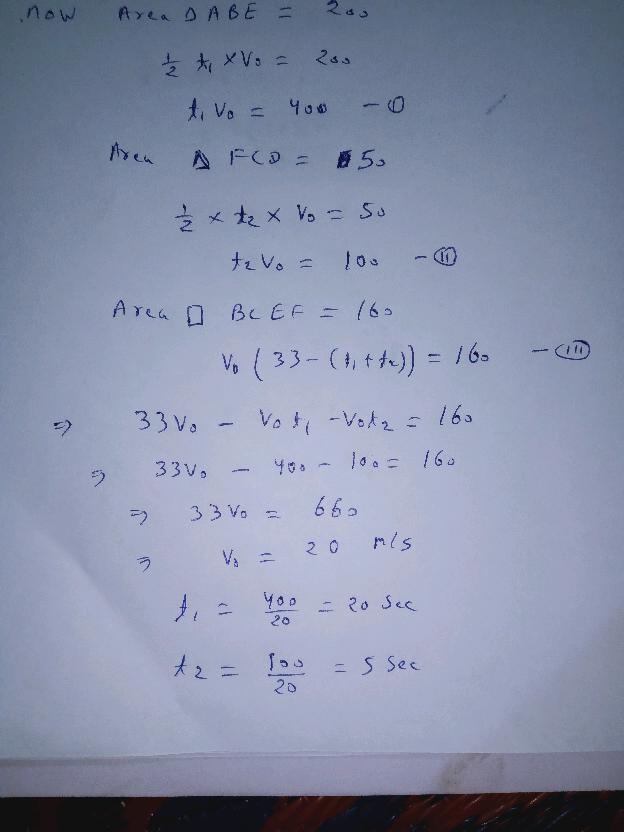 now Area Δ ABE = 200
1/2 t₁ × V₀ = 200
t₁ V₀ = 400 - (I)
Area Δ FCD = 50
1/2 × t₂ × V₀ = 50
t₂ V₀ = 100 - (II)
Area □ BCEF = 160
V₀ ( 33 - (t₁ + t₂)) = 160 - (III)
⇒ 33V₀ - V₀t₁ - V₀t₂ = 160
⇒ 33V₀ - 400 - 100 = 160
⇒ 33V₀ = 660
⇒ V₀ = 20 m/s
t₁ = 400/20 = 20 Sec
t₂ = 100/20 = 5 Sec